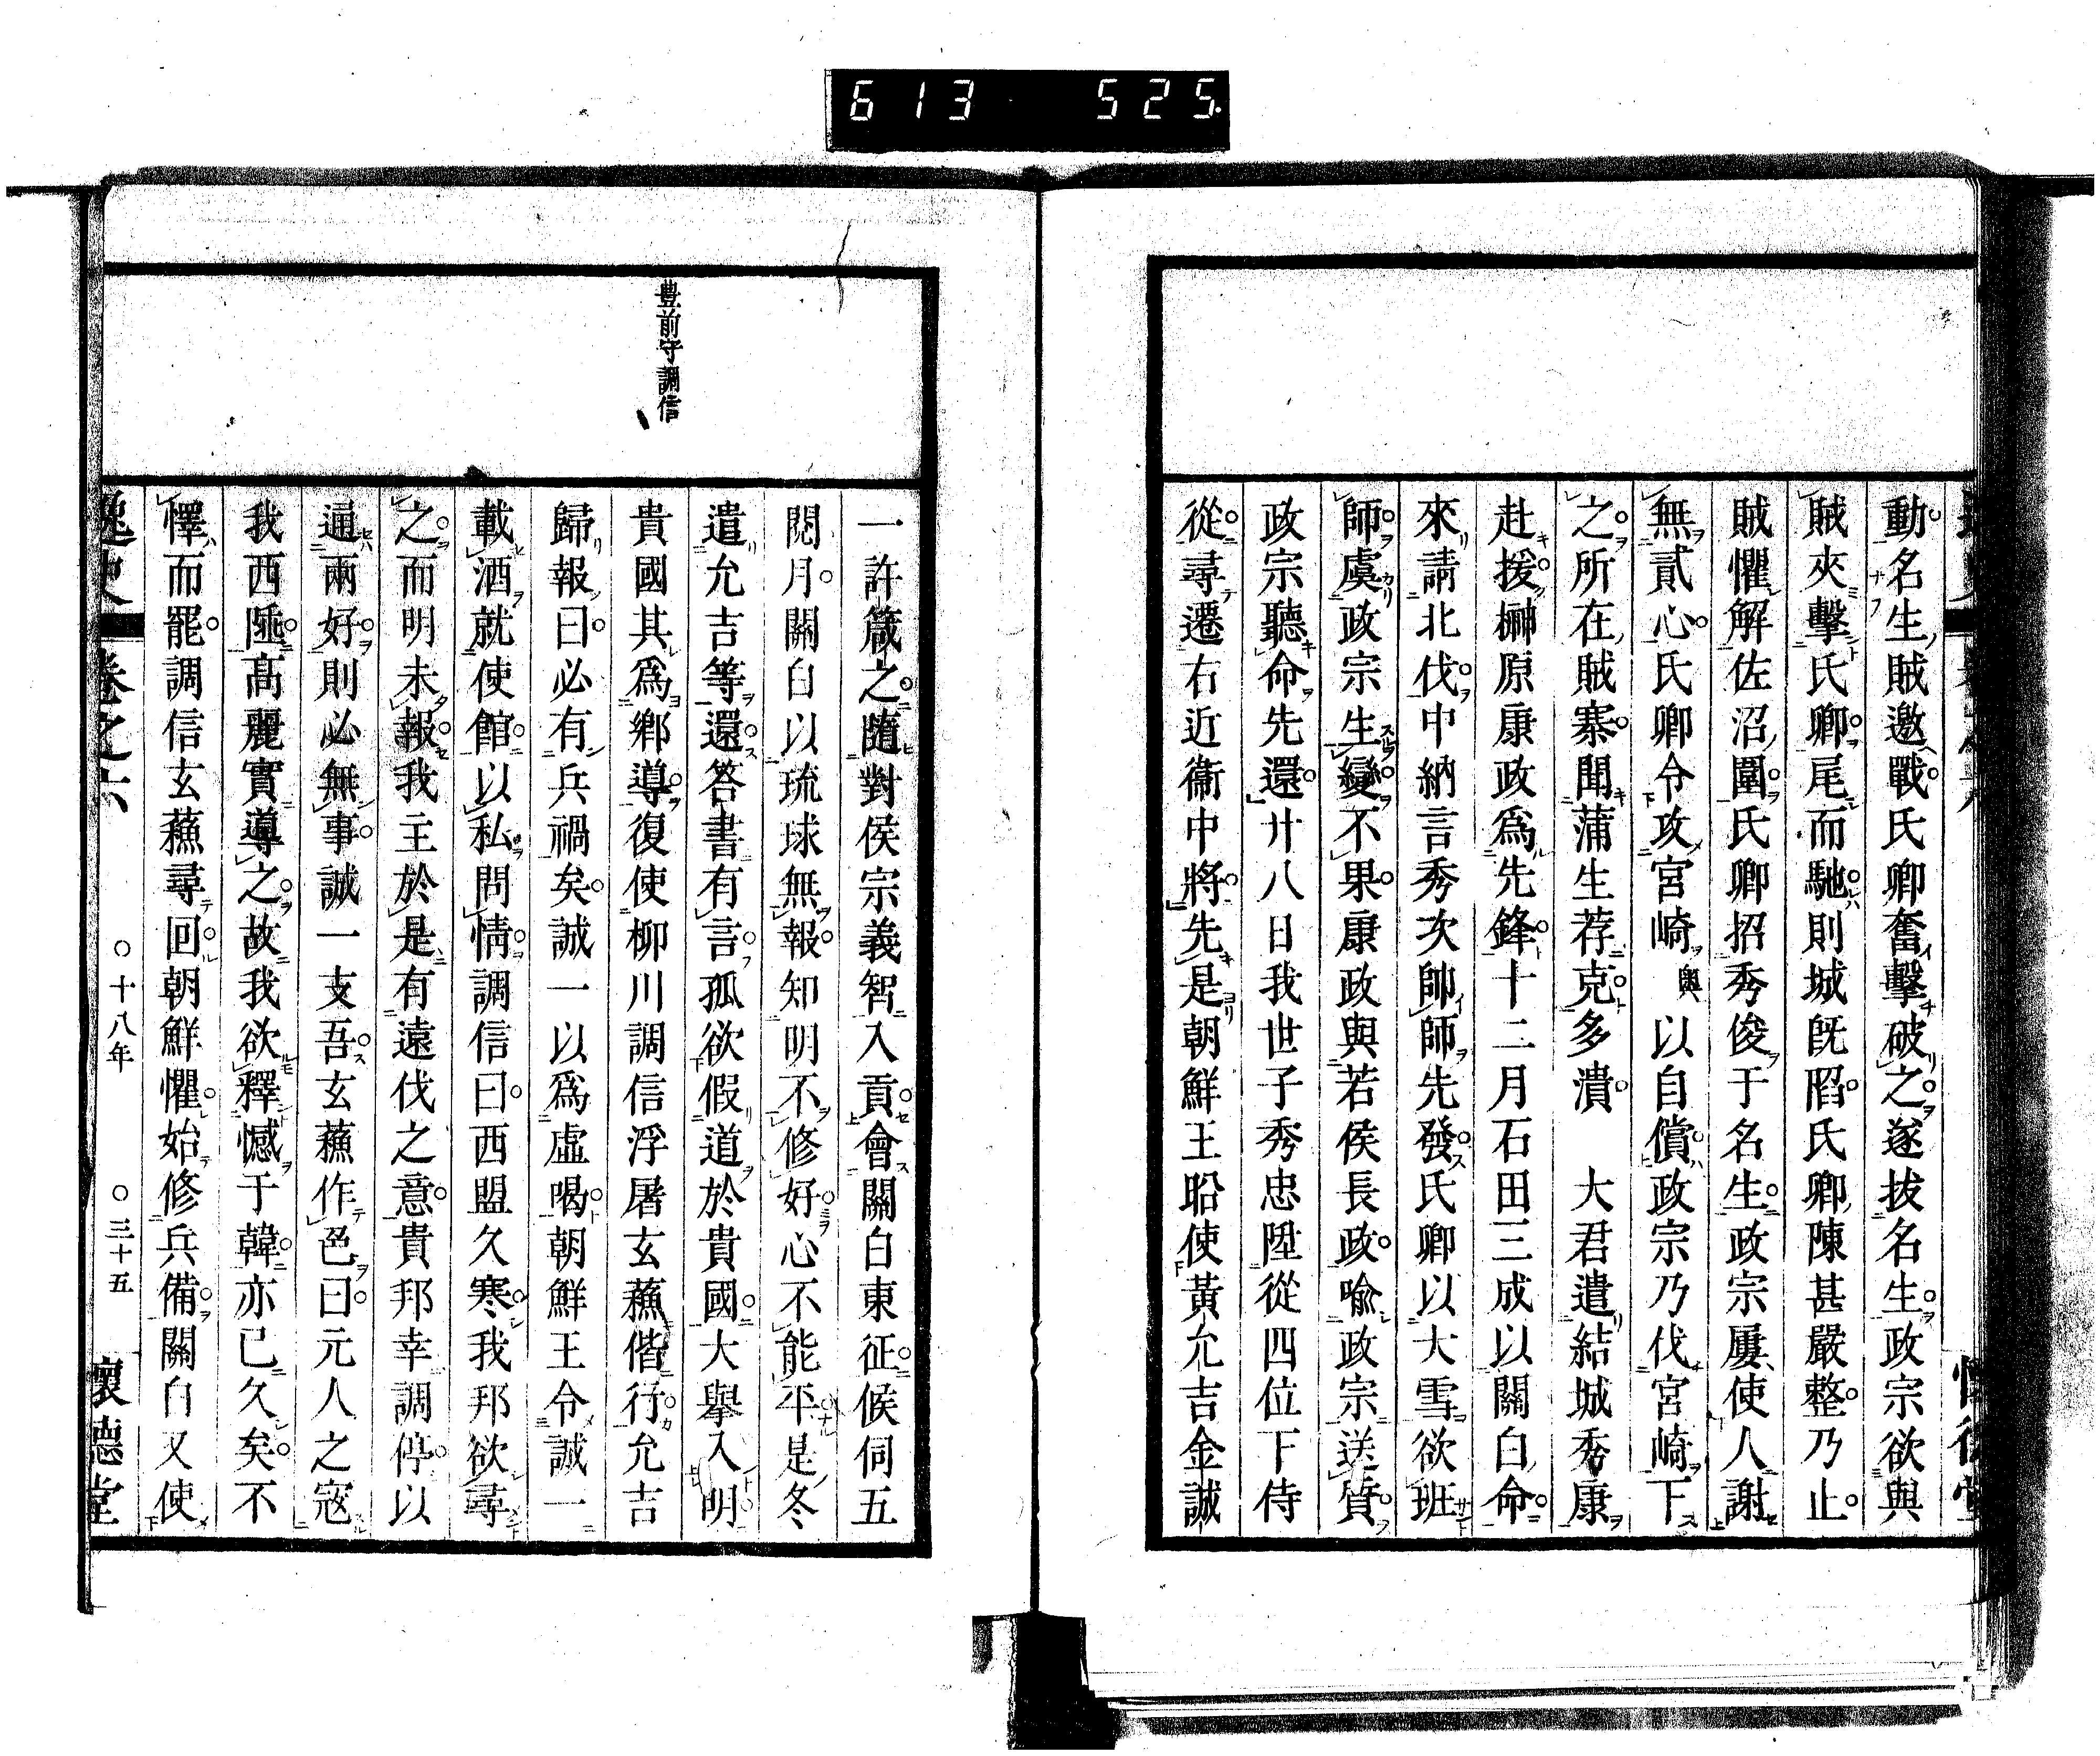 613 525.
動名生賊邀戰氏卿奮擊破之遂拔名生政宗欲與
賊夾擊氏卿尾而馳則城旣陷氏卿陳甚嚴整乃止
賊懼解佐沼圍氏卿招秀俊于名生政宗屢使人謝
無貳心氏卿令攻宮崎與以自償政宗乃伐宮崎下
之所在賊寨聞蒲生荐克多潰 大君遣結城秀康
赴援榊原康政爲先鋒十二月石田三成以關白命
來請北伐中納言秀次帥師先發氏卿以大雪欲班
師虞政宗生變不果康政與若侯長政喩政宗送質
政宗聽命先還廿八日我世子秀忠陞從四位下侍
從尋遷右近衞中將先是朝鮮王昖使黃允吉金誠
豊前守調信
一許箴之隨對侯宗義智入貢會關白東征候伺五
閱月關白以琉球無報知明不修好心不能平是冬
遣允吉等還答書有言孤欲假道於貴國大擧入明
貴國其爲鄕導復使柳川調信浮屠玄蘓偕行允吉
歸報曰必有兵禍矣誠一以爲虛喝朝鮮王令誠一
載酒就使館以私問情調信曰西盟久寒我邦欲尋
之而明未報我主於是有遠伐之意貴邦幸調停以
通兩好則必無事誠一支吾玄蘓作色曰元人之寇
我西陲高麗實導之故我欲釋憾于韓亦已久矣不
懌而罷調信玄蘓尋回朝鮮懼始修兵備關白又使
逸史 卷之六 ○十八年 ○三十五 懷德堂